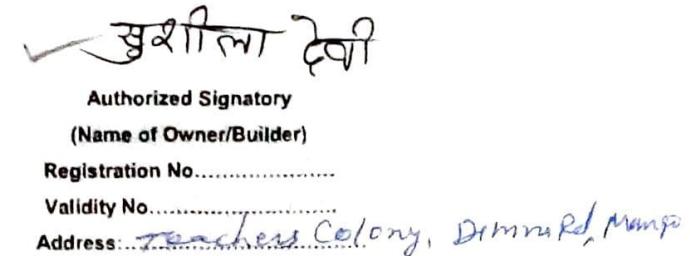 सुशीला देवी
Authorized Signatory
(Name of Owner/Builder)
Registration No......................
Validity No............................
Address: Teachers Colony, Dimna Rd, Mango